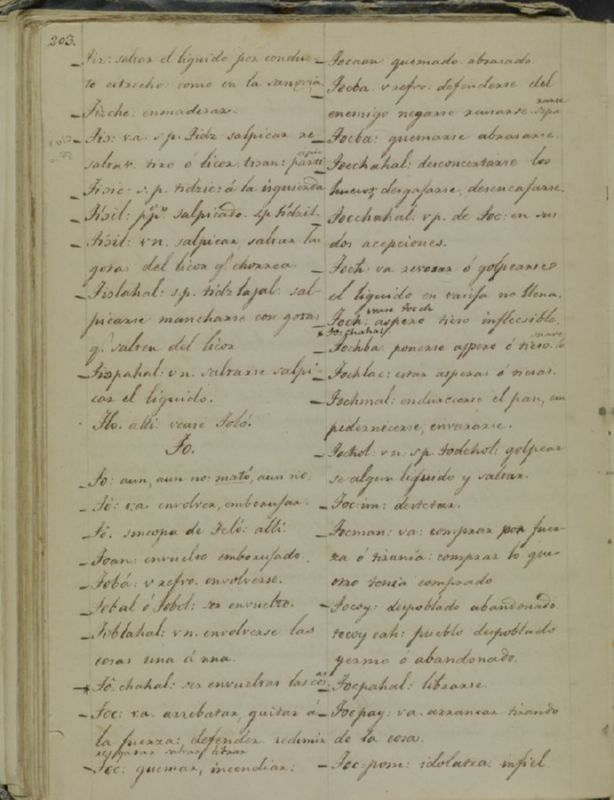 203.
Tiz: saltar el liquido por conduc-
to estrecho: como en la sangria
Tizche: enmaderar.
Tiz: va. s.p. Tidz salpicar re-
saltar. tizo o licor. tizan:
Tizic: s.p. tidzic: á la izquierda
Tizil: salpicado. s.p. tidzil.
Tizil: vn. salpicar, saltar las
gotas del licor q.e chorrea
Tizlahal: s.p. tidzlajal: sal-
picarse mancharse con gotas
q.e salten del licor
Tizpahal: vn. saltarse salpi-
car el liquido.
Tlo. alli vease Teló.
To.
To: aun, aun no: mató, aun no:
Tó: va. envolver, emborujar.
Tó. sincopa de Teló: alli.
Toan: envuelto emborujado.
Tobá: v refvo. envolverse.
Tobal ó Tobol: ser envuelto.
Toblahal: vn. envolverse las
cosas una á una.
Tó.chahal: ser envueltas las cosas
Toc: va. arrebatar, quitar á
la fuerza: defender redimir
Toc: quemar, incendiar:
Tocaan quemado abrasado
Tocba v refvo. defenderse del
enemigo negarse escusarse
Tocba: quemarse abrasarse.
Tocchahal: desconcertarse los
huesos desgajarse, desencajarse.
Tocchahal: vp. de Toc: en sus
dos acepciones.
Toch: va. rebosar ó golpearse
el liquido en vasija no llena.
vease Toch
Toch: aspero tieso inflecsible,
Tochchahal.
Tochba ponerse aspero ó tieso.
Tochlac: estar asperas ó tiesas.
Tochmal: endurecerse el pan, em
pedernecerse, envararse.
Tochol: vn: s.p. todchol: golpear
se algun liquido y saltar.
Toc-im: destetar.
Tocman: va: comprar por fuer-
za ó tirania: comprar lo que
otro tenia comprado
Tocoy: despoblado abandonado
tocoy cah: pueblo despoblado
yermo o abandonado.
Tocpahal: librarse.
Tocpay: va. arrancar tirando
de la cosa.
Toc-pom: idolatra infiel